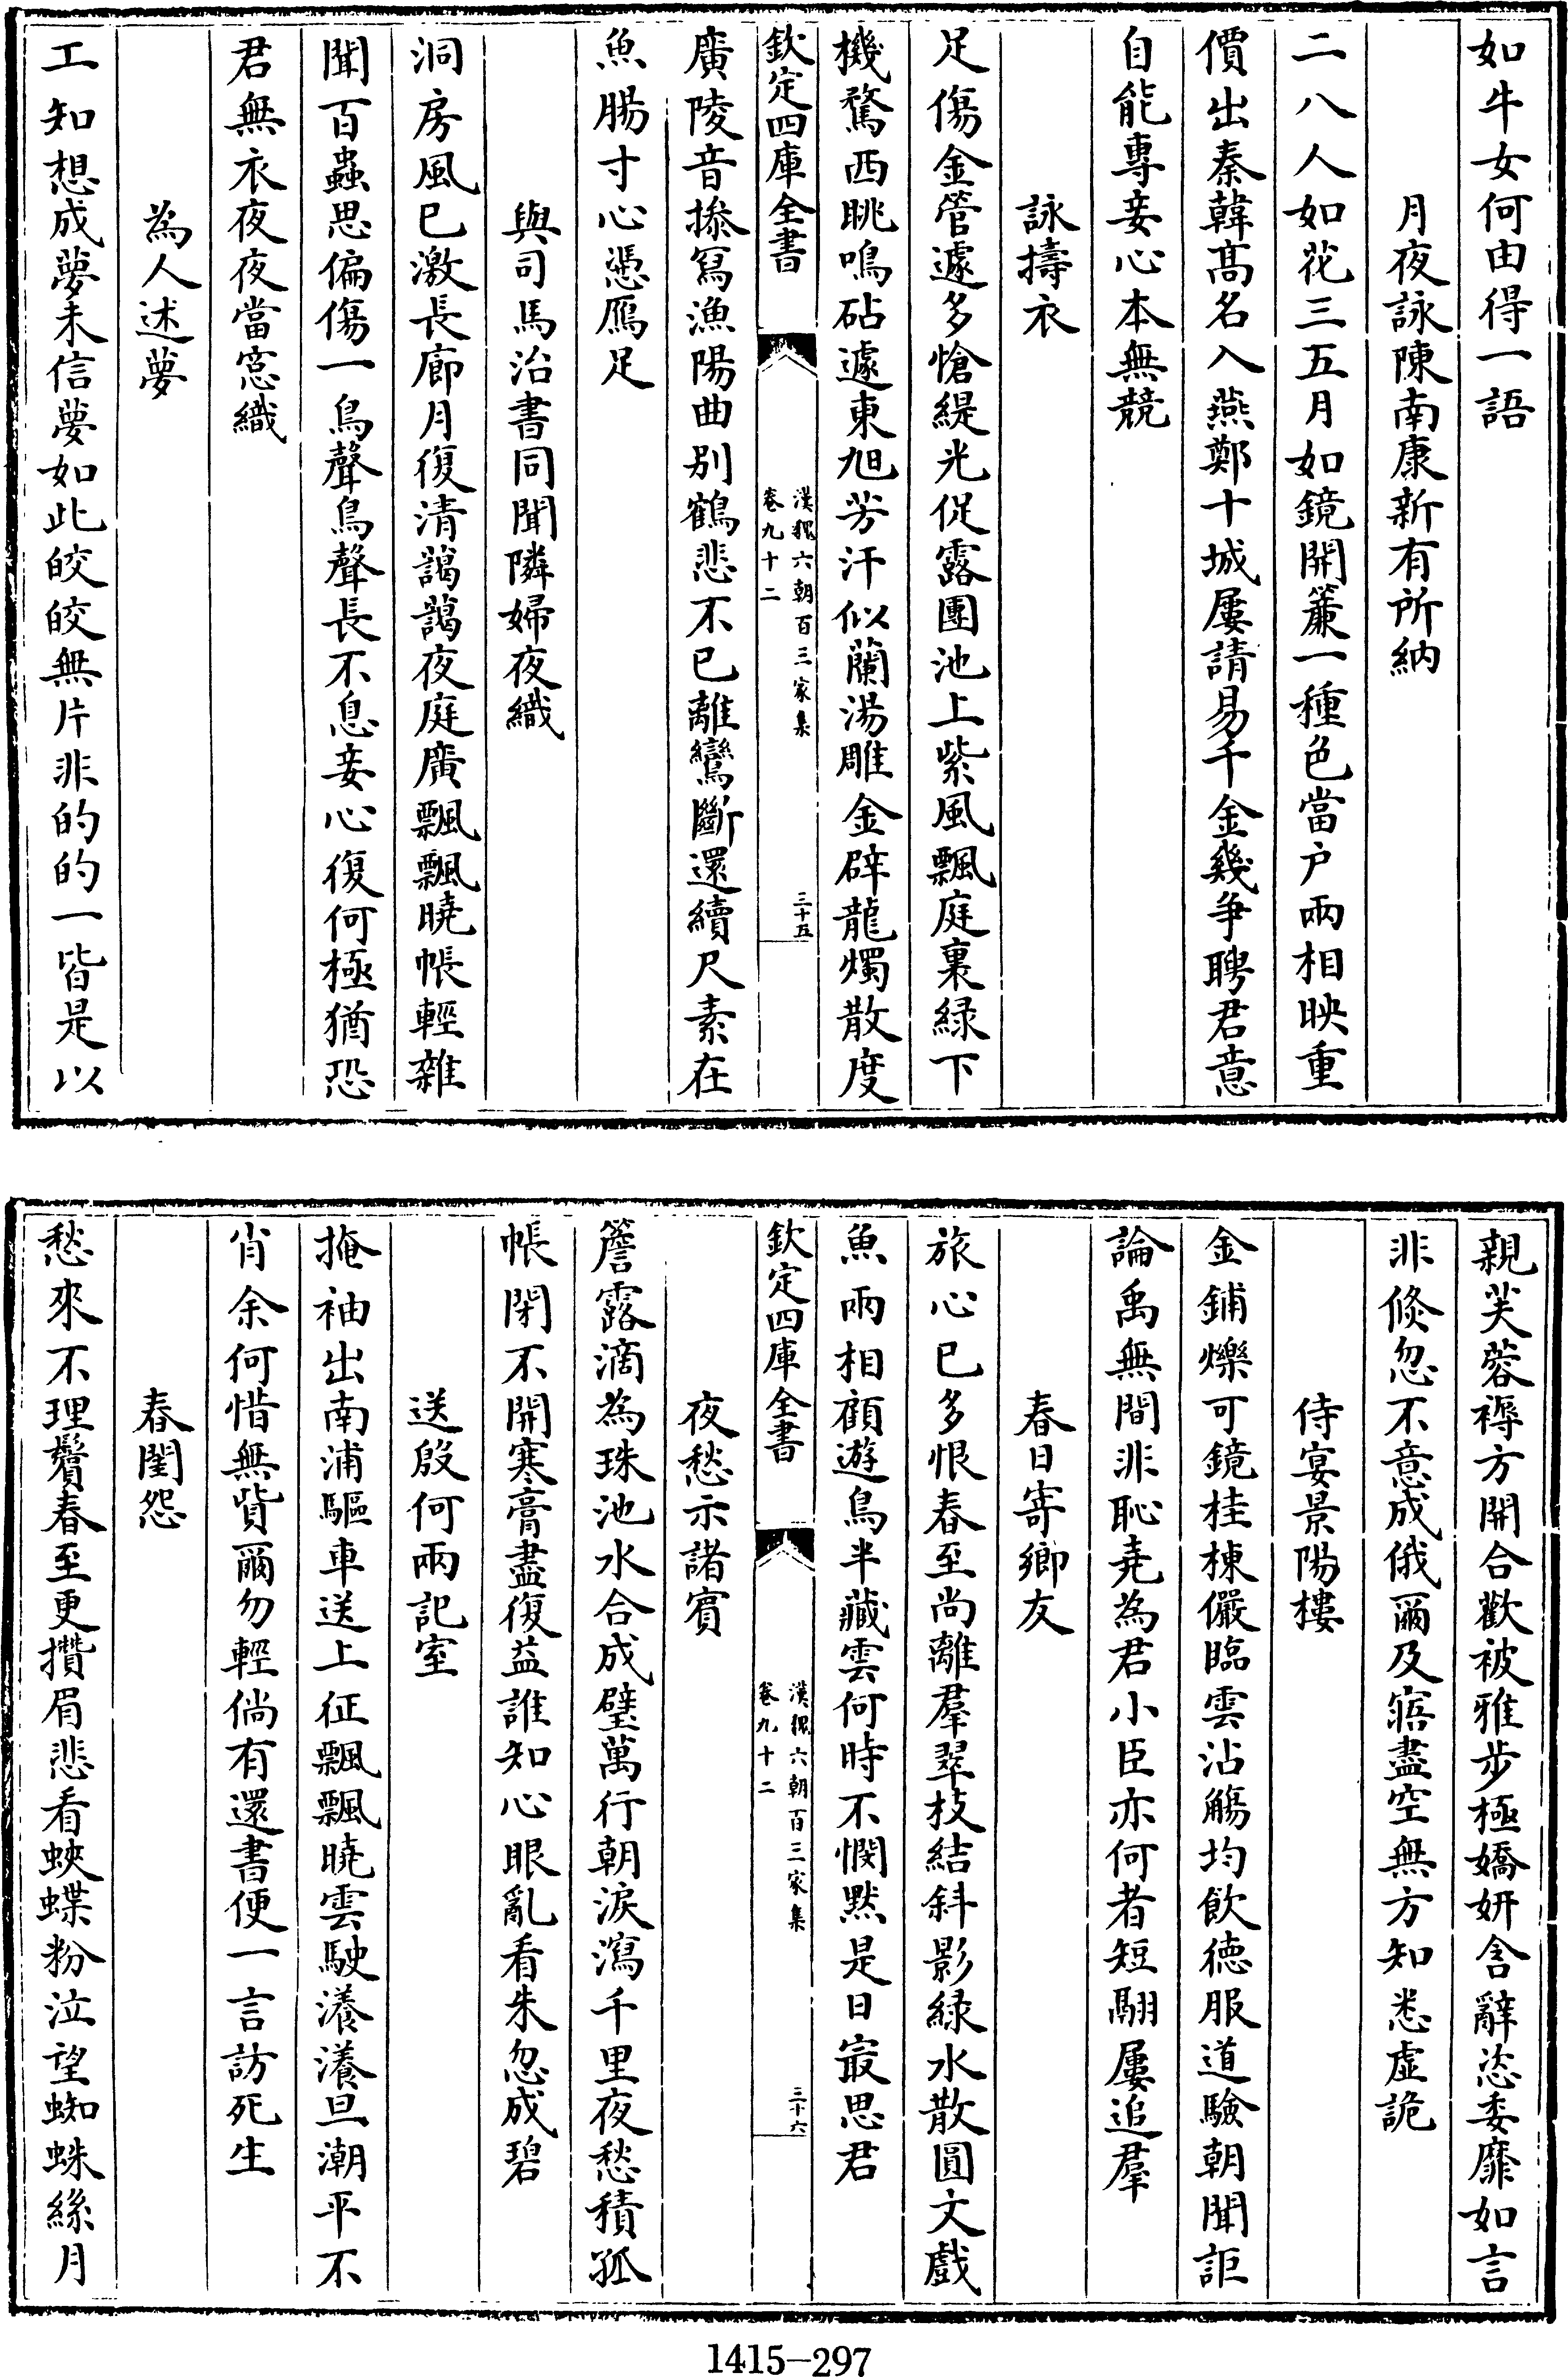 如牛女何由得一語
月夜詠陳南康新有所納
二八人如花三五月如鏡開簾一種色當户兩相映重
價出秦韓髙名入燕鄭十城屢請易千金幾争聘君意
自能專妾心本無競
詠擣衣
足傷金管遽多愴緹光促露團池上紫風飄庭裏緑下
機騖西眺鳴砧遽東旭芳汗似蘭湯雕金辟龍燭散度
欽定四庫全書
漢魏六朝百三家集
卷九十二
三十五
廣陵音摻寫漁陽曲别鶴悲不已離鸞斷還續尺素在
魚腸寸心憑鴈足
與司馬治書同聞隣婦夜織
洞房風已激長廊月復清藹藹夜庭廣飄飄曉帳輕雜
聞百蟲思偏傷一鳥聲鳥聲長不息妾心復何極猶恐
君無衣夜夜當窓織
為人述夢
工知想成夢未信夢如此皎皎無片非的的一皆是以
親芙蓉褥方開合歡被雅步極嬌妍含辭恣委靡如言
非倐忽不意成俄爾及寤盡空無方知悉虚詭
侍宴景陽樓
金鋪爍可鏡桂棟儼臨雲沾觴均飲德服道驗朝聞詎
論禹無間非恥堯為君小臣亦何者短翮屢追羣
春日寄鄉友
旅心已多恨春至尚離羣翠枝結斜影緑水散圓文戲
魚兩相顧遊鳥半藏雲何時不憫默是日㝡思君
欽定四庫全書
漢魏六朝百三家集
卷九十二
三十六
夜愁示諸賓
簷露滴為珠池水合成璧萬行朝淚瀉千里夜愁積孤
帳閉不開寒膏盡復益誰知心眼亂看朱忽成碧
送殷何兩記室
掩袖出南浦驅車送上征飄飄曉雲駛瀁瀁旦潮平不
肖余何惜無貲爾勿輕倘有還書便一言訪死生
春閨怨
愁來不理鬢春至更攢眉悲看蛺蝶粉泣望蜘蛛絲月
1415-297